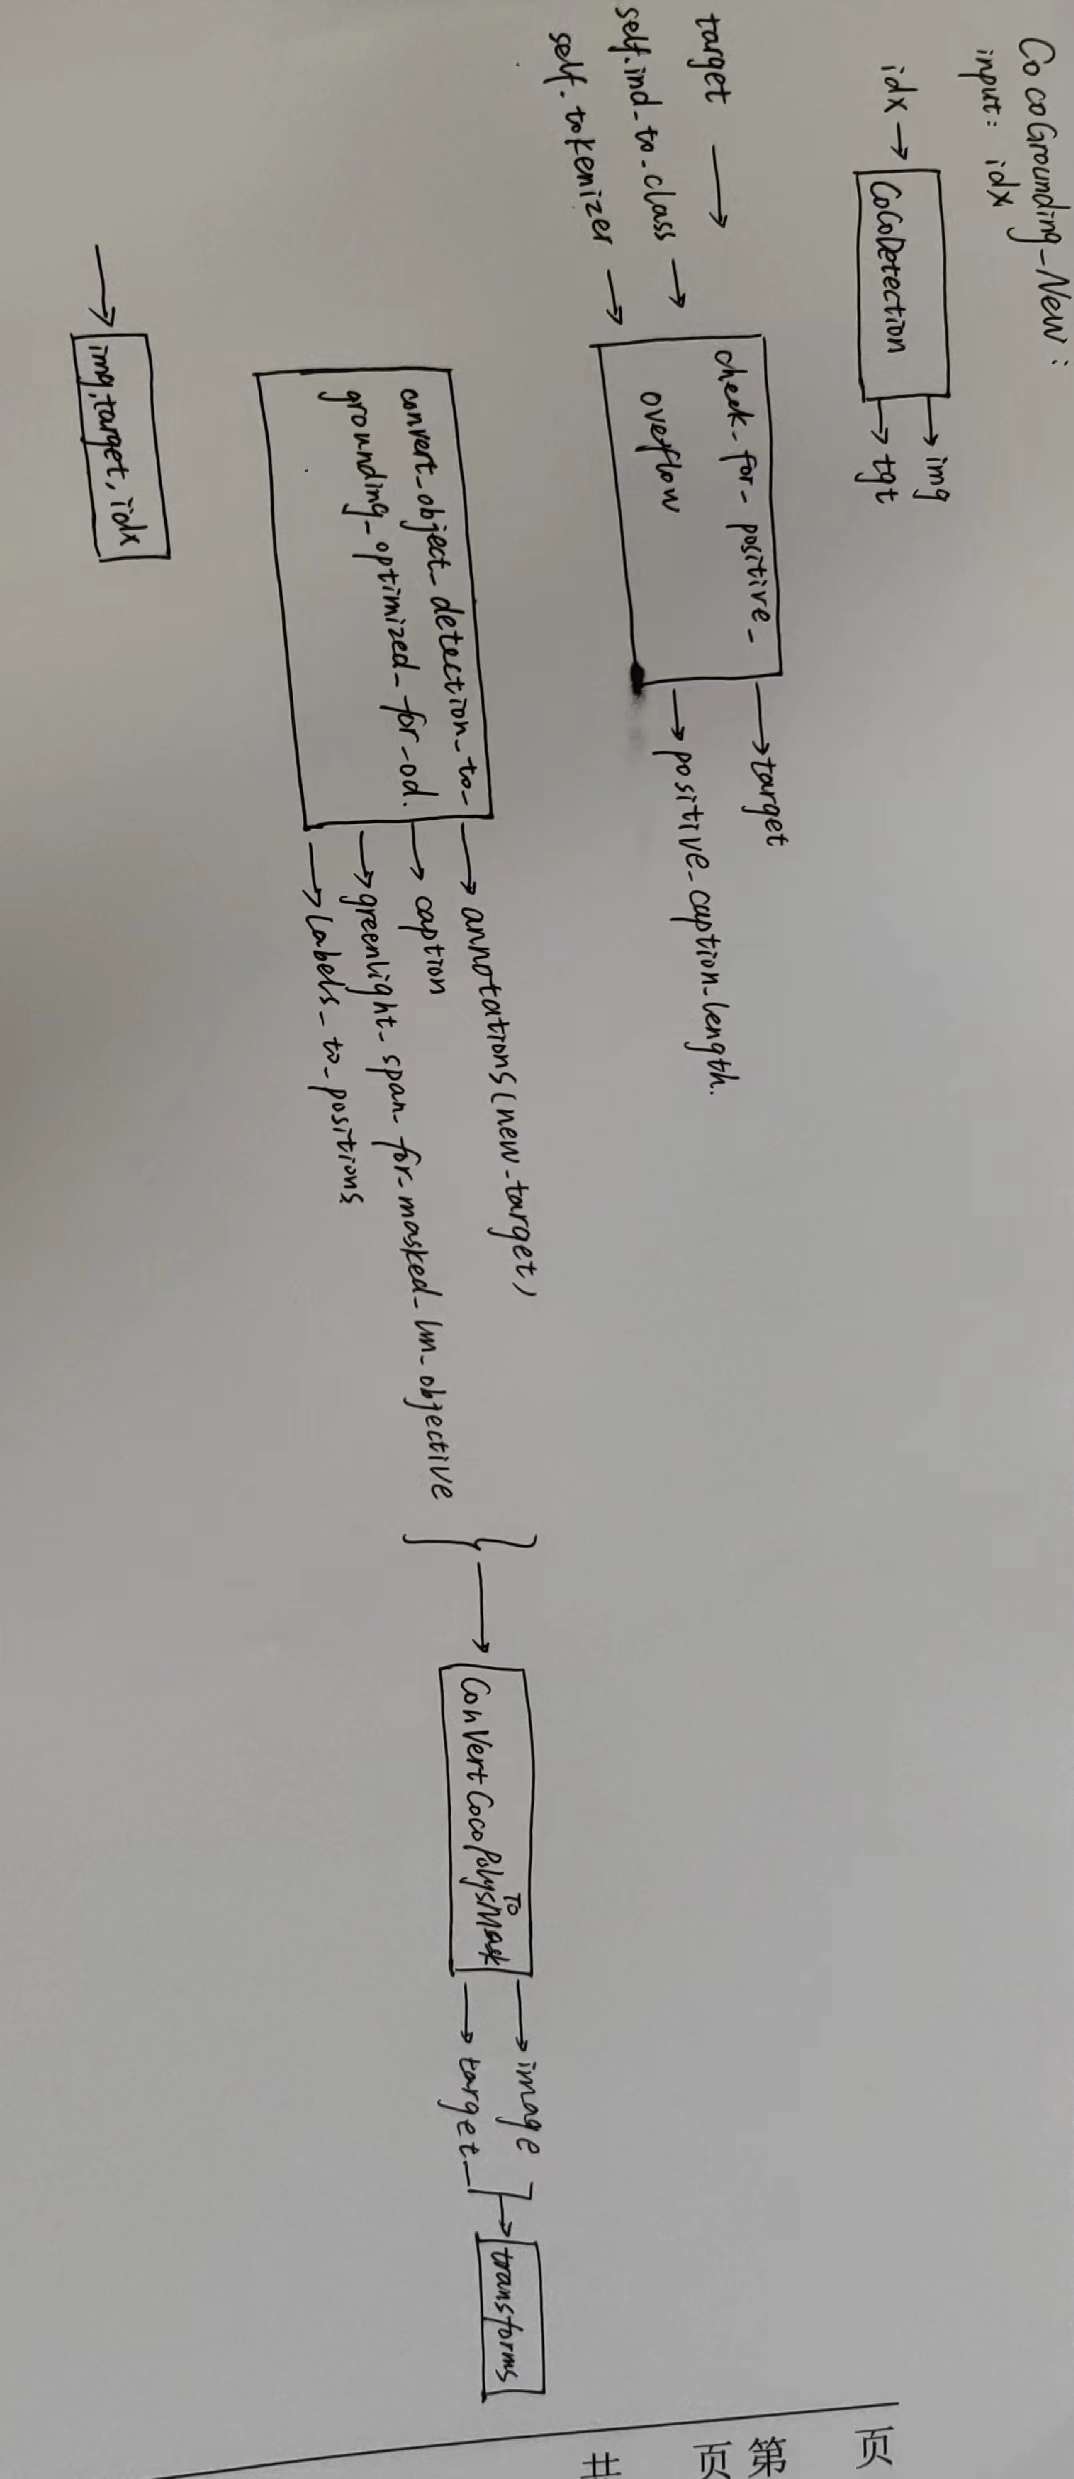 CocoGrounding_New:
input: idx
idx → CoCoDetection → img
→ tgt
target →
self.ind_to_class →
self.tokenizer →
check_for_positive_
overflow
→ target
→ positive_caption_length.
convert_object_detection_to_
grounding_optimized_for_od.
→ annotations(new_target)
→ caption
→ greenlight_span_for_masked_lm_objective
→ labels_to_positions
} → ConvertCocoPolysToMask → image
→ target
→ transforms
→ img,target, idx
共 页 第 页